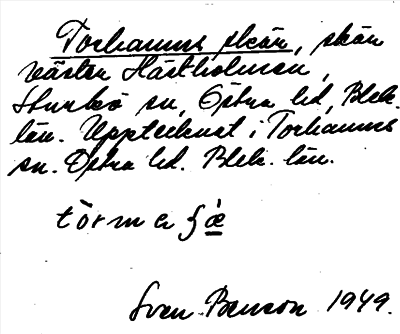 Torhamns skär, skär
väster Hästholmen,
Sturkö sn, Östra hd, Blek.
län. Upptecknat i Torhamns
sn. Östra hd. Blek. län.
Sven Benson 1949.